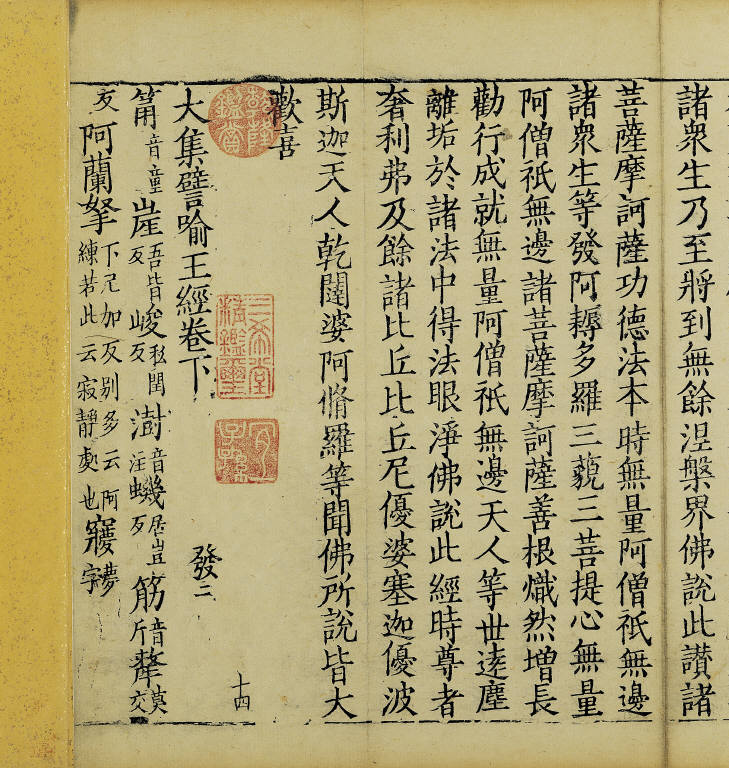 諸衆生乃至將到無餘涅槃界佛說此讃諸
菩薩摩訶薩功德法本時無量阿僧祇無邊
諸衆生等發阿耨多羅三藐三菩提心無量
阿僧祇無邊諸菩薩摩訶薩善根熾然增長
勸行成就無量阿僧祇無邊天人等世逺塵
離垢於諸法中得法眼淨佛說此經時尊者
奢利弗及餘諸比丘比丘尼優婆塞迦優波
斯迦天人乾闥婆阿脩羅等聞佛所說皆大
歡喜
大集譬喻王經卷下
發三
十四
筩音童崖吾皆反峻私閏反澍音注蟣居豈反筋音斤犛莫交
反阿蘭拏下尼加反别多云阿練若此云寂靜處也寱夢字
三希堂精鑑璽
宜子孫